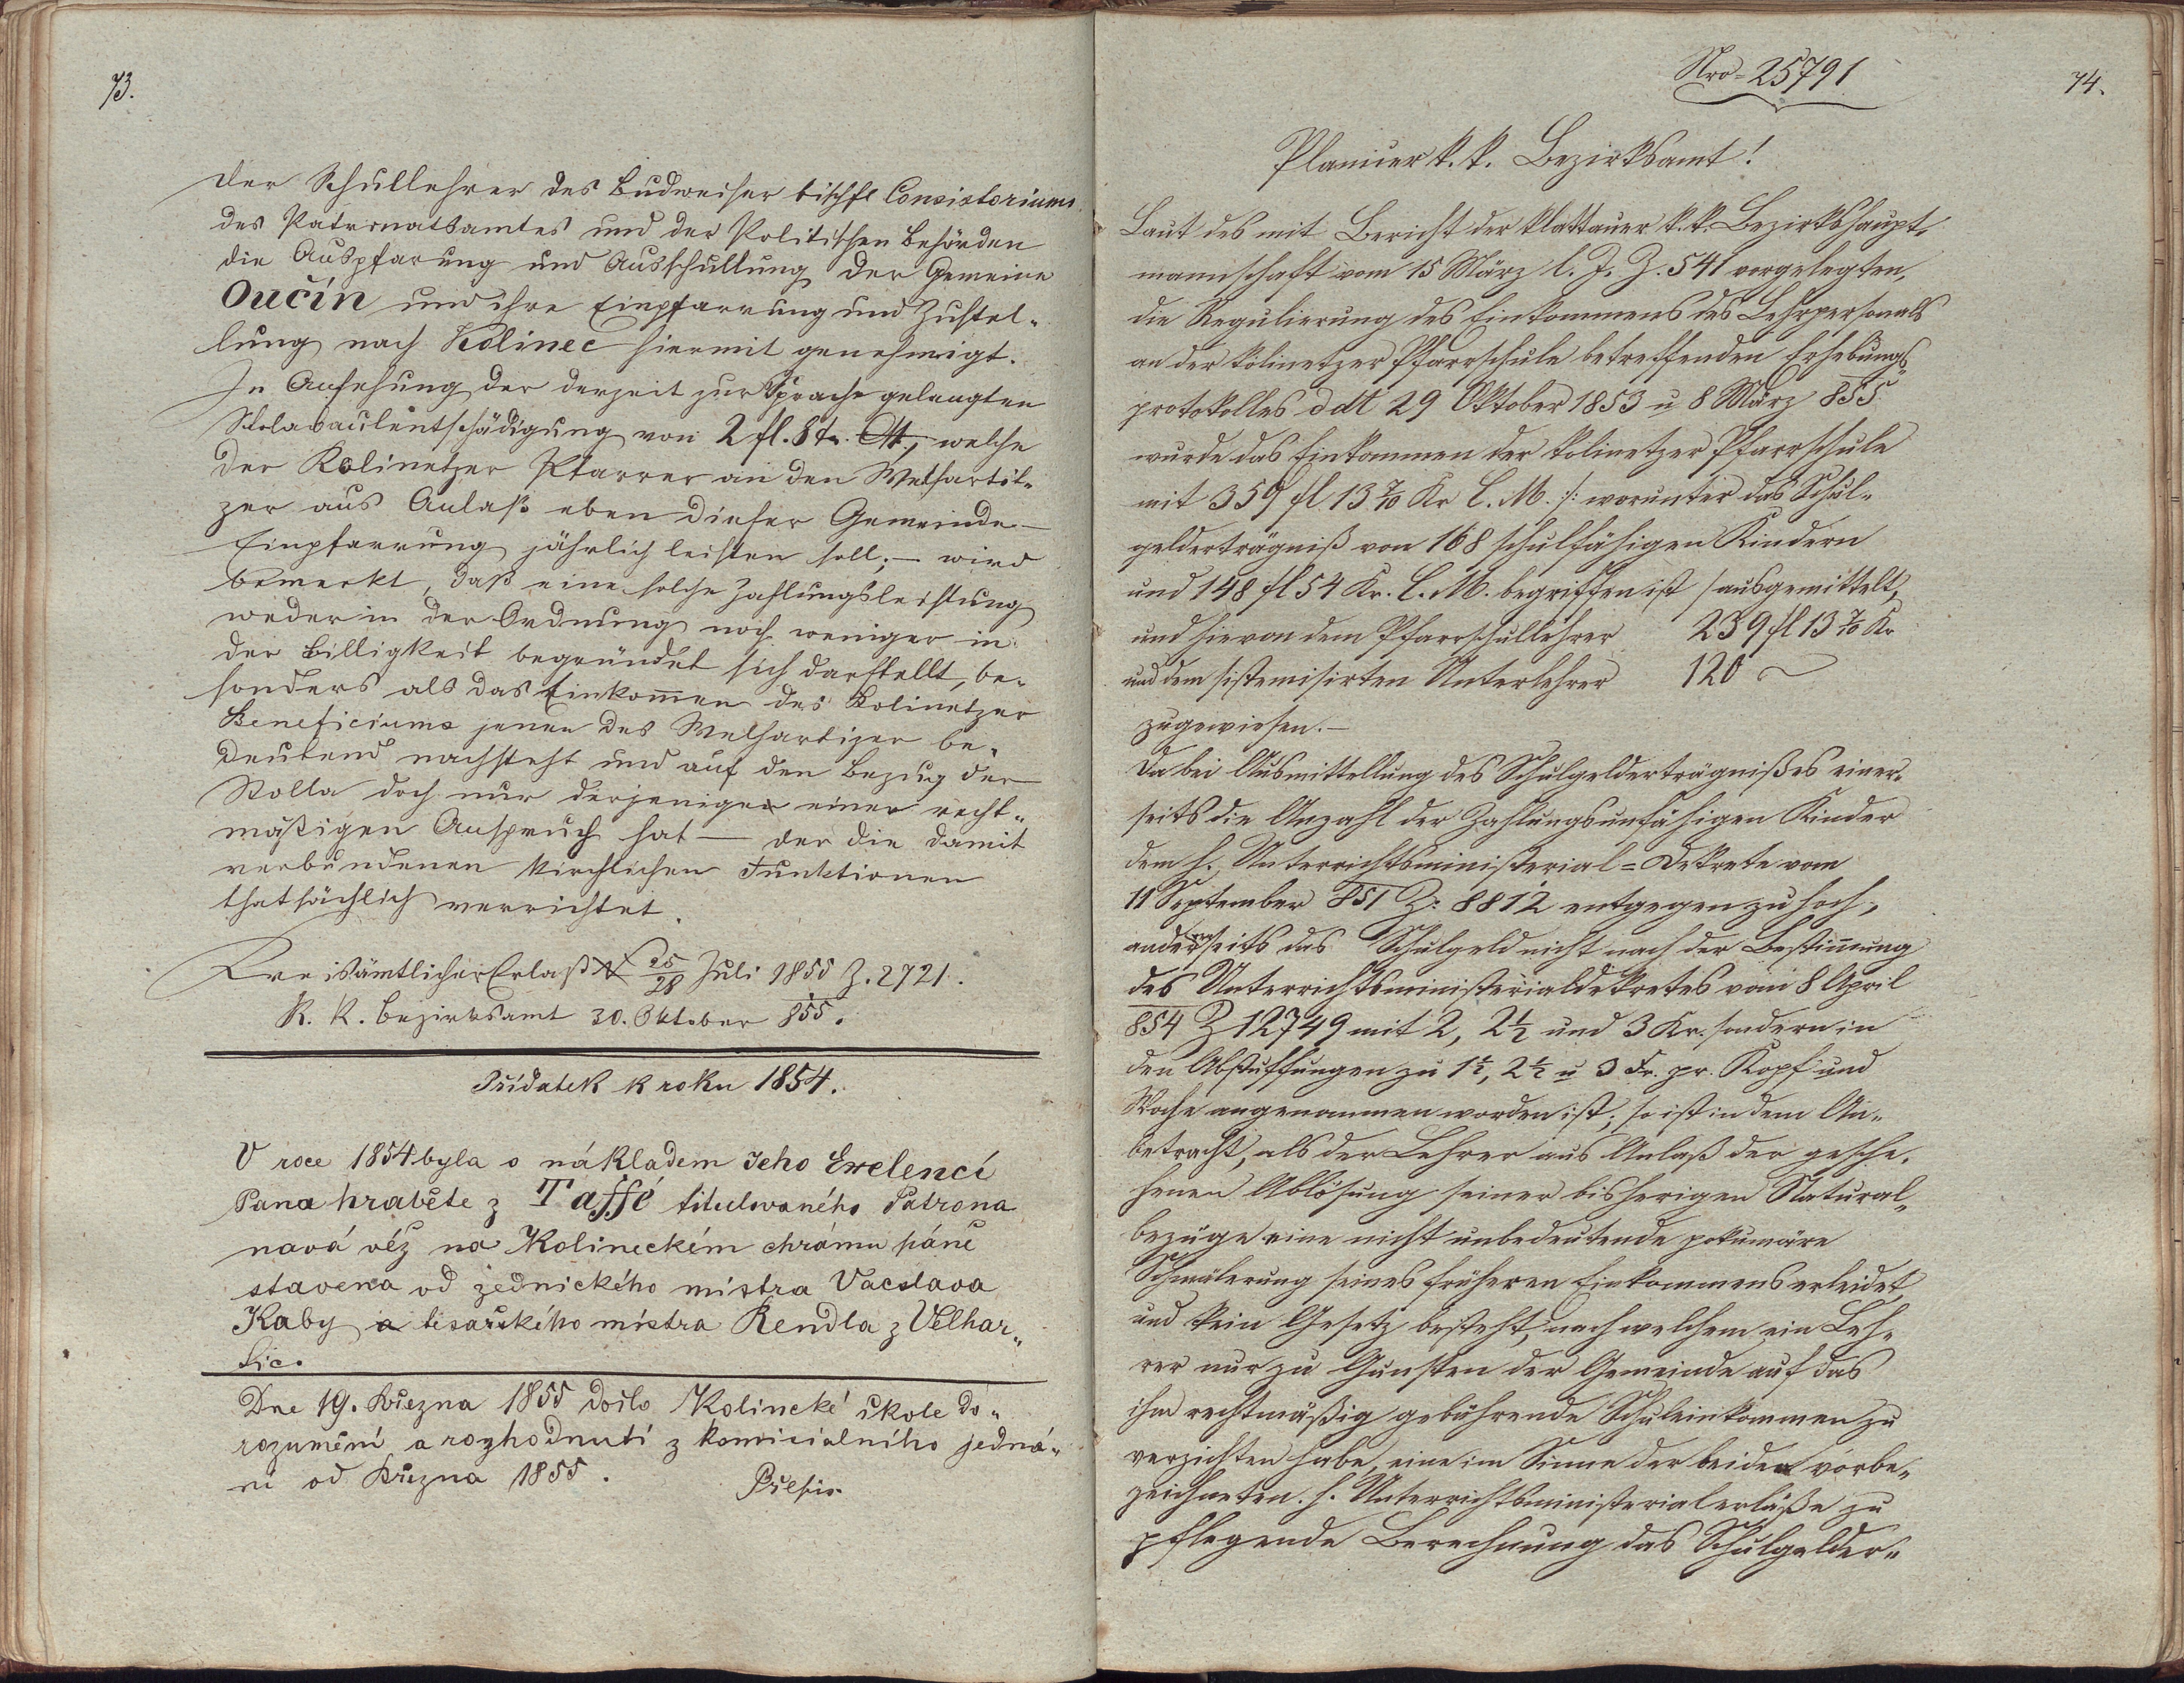 73.
der Schullehrer des Budweiser bischfl Consistoriums
des Patronatsamtes und der Politischen Behörden
die Auspfarung und Ausschullung der Gemeine
Oučín und ihre Einpfarrung und Zustel„
lung nach Kolinec hiermit genehmigt.
In Ansehung der derzeit zur Sprache gelangten
von 2 fl. 8 welche
der Kolinetzer Pfarrer an den Welhartit„
zer aus Anlaß eben dieser Gemeinde –
Einpfarrung jährlich leisten soll; – wird
bemerkt, daß eine solche Zahlungsleistung
weder in der Ordnung noch weniger in
der Billigkeit begründet sich darstellt, be„
sonders als das Einkom̄en des Kolinetzer
Beneficiums jenen des Welhartizer be„
deutend nachsteht und auf den Bezug der
Stolla doch nur derjenige einen recht„
mäßigen Anspruch hat – der die damit
verbundenen kirchlichen Funktionen
thatsächlich verrichtet.
Kreisämtlicher Erlaß 25/28 Juli 1855 Z. 2721.
K. K. Bezirksamt 30. Oktober 855.
Přídatek k roku 1854.
V roce 1854 byla s nákladem Jeho Exelencí
Pana hraběte z Taffé titulovaného Patrona
nová věž na Kolineckém chrámu páně
stavena od zednického mistra Vacslava
Kaby a tesařského mistra Rendla z Velhar„
tic.
Dne 19. Března 1855 došlo Kolincké škole do„
rozumění a rozhodnutí z komicialního jedná„
ní od Března 1855.
Přepis
74.
Nro = 25791
Planicer k. k. Bezirksamt!
Laut des mit Bericht der Klattauer k. k. Bezirkshaupt„
mannschaft vom 15 März l. J. Z. 541 vorgelegten,
die Regulierung des Einkommens des Lehrpersonals
an der Kolinetzer Pfarrschule betreffenden Erhebungs„
protokolles ddt 29 Oktober 1853 u 8 März 855
wurde das Einkommen der Kolinetzer Pfarrschule
mit 359 fl 13 7/10 Kr C. M. /: worunter das Schul„
gelderträgniß von 168 schulfähigen Kindern
und 148 fl 54 Kr. C. M. begriffen ist / ausgemittelt,
und hievon dem Pfarrschullehrer 239 fl 13 7/10 Kr
und dem sistemisirten Unterlehrer 120 ~
zugewiesen. –
Da bei Ausmittellung des Schulgelderträgnißes einer„
seits die Anzahl der Zahlungsunfähigen Kinder
dem h. Unterrichtsministerial = Dekrete vom
11 September 851 Z: 8812 entgegen zu hoch,
anderseits das Schulgeld nicht nach der Bestim̄ung
des Unterrichtsministerialdekretes vom 8 April
854 Z 12749 mit 2, 2½ und 3 Kr. sondern in
den Abstuffungen zu 1½, 2½ u 3 Kr. pr. Kopf und
Woche angenommen worden ist; so ist in dem An„
betracht, als der Lehrer aus Anlaß der gesche„
henen Ablösung seiner bisherigen Natural„
bezüge eine nicht unbedeutende pekuniäre
Schmälerung seines früheren Einkommens erleidet,
und kein Gesetz besteht, nach welchem ein Leh„
rer nur zu Gunsten der Gemeinde auf das
ihm rechtmäßig gebührende Schuleinkommen zu
verzichten habe, eine im Sinne der beiden vorbe„
zeichneten h. Unterrichtsministerialerläße zu
pflegende Berechnung das Schulgelder„